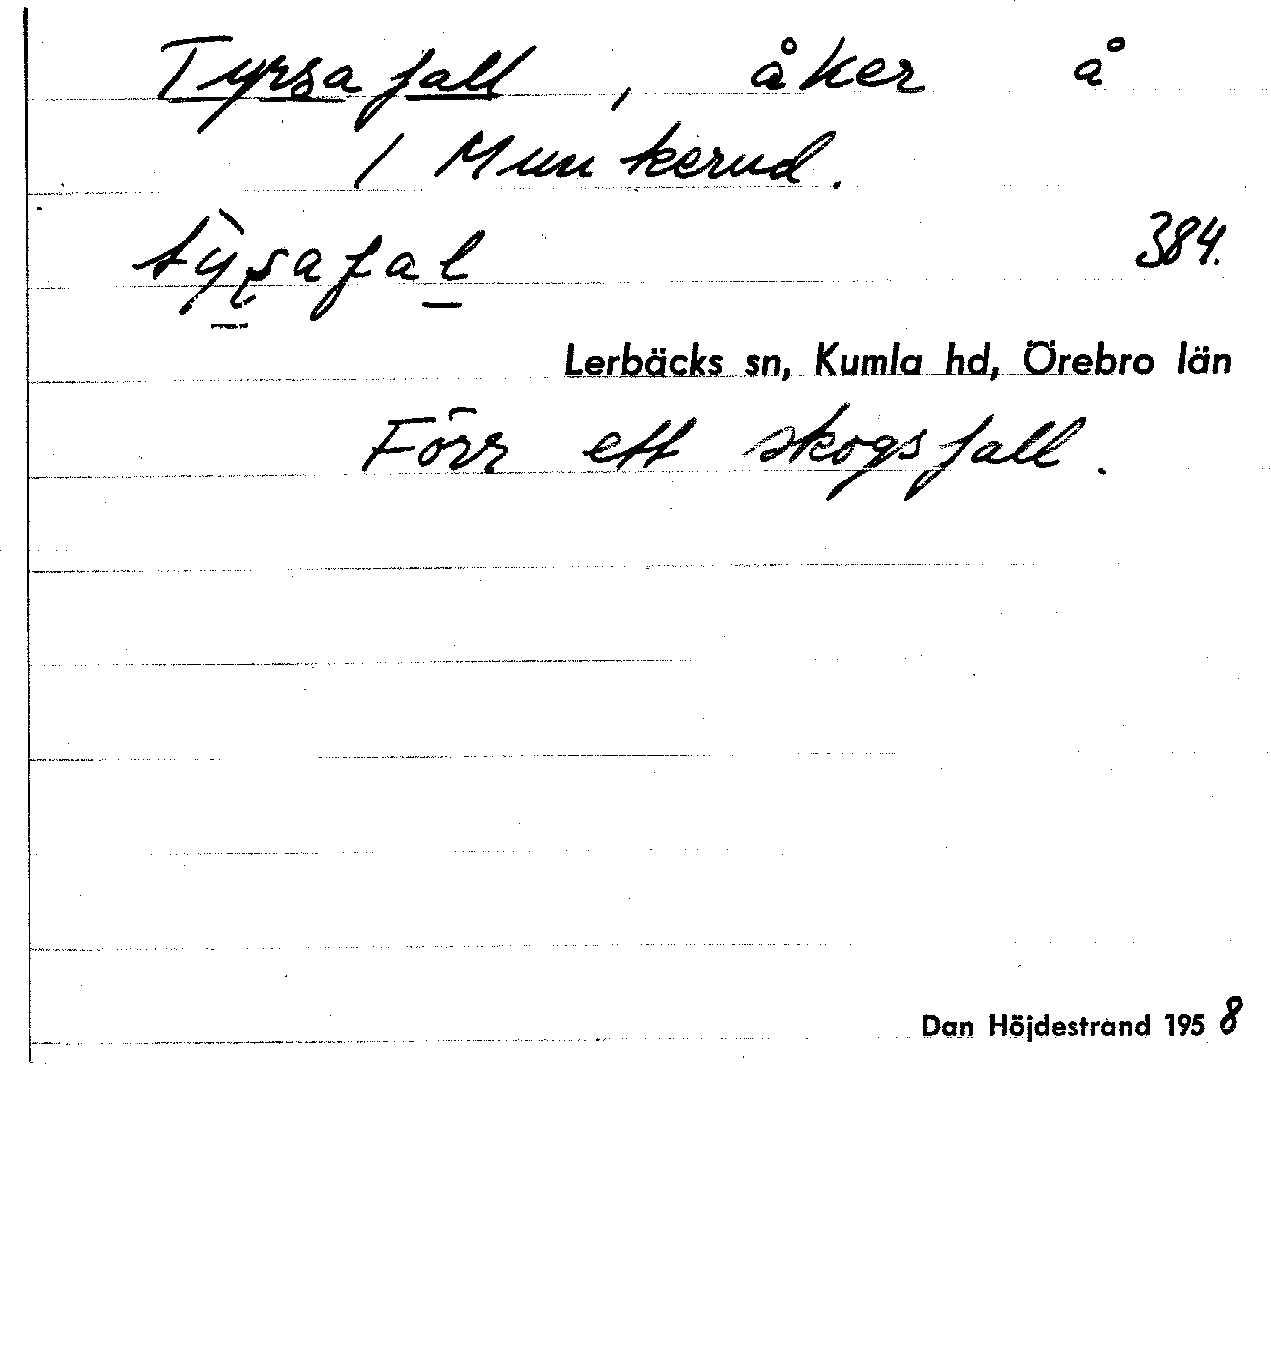 Tyrsafall, åker å
1 Munkerud.
tỳʂafal
384.
Lerbäcks sn, Kumla hd, Örebro län
Förr ett skogsfall.
Dan Höjdestrand 1958